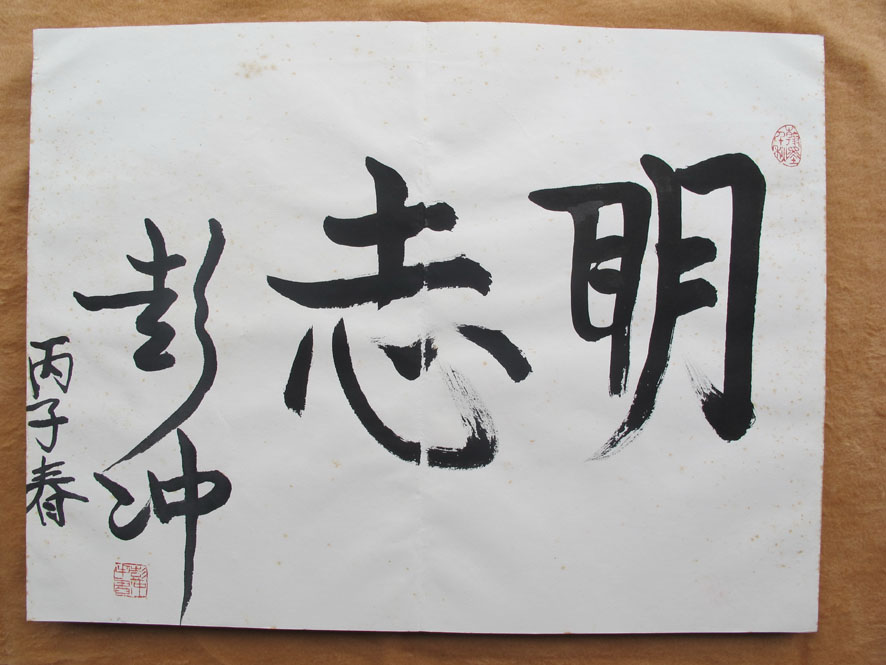 明志
彭冲
丙子春